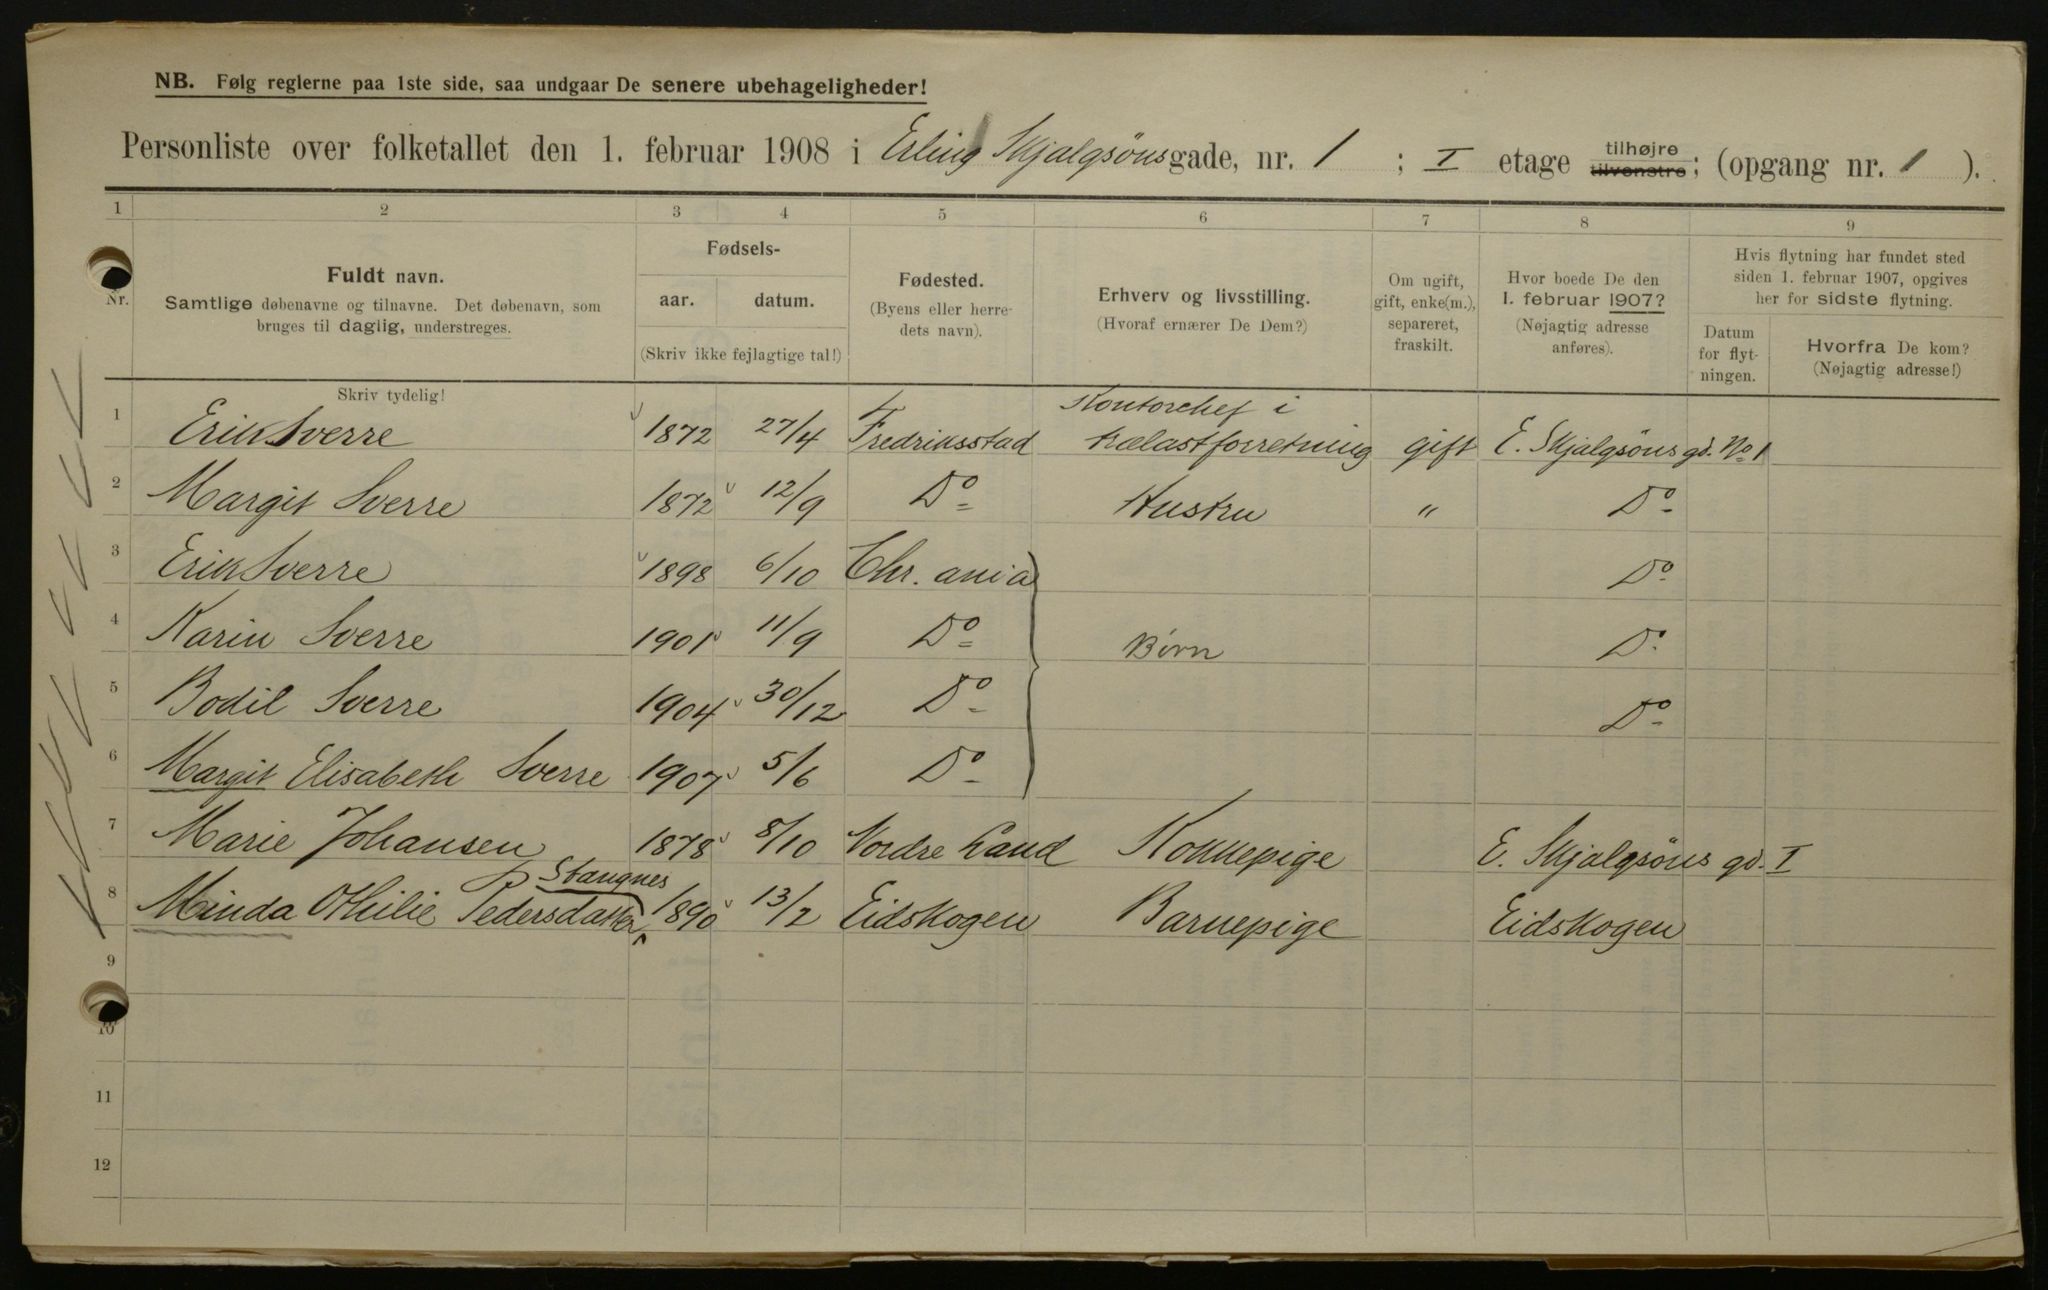 NB. Følg reglerne paa 1ste side, saa undgaar De senere ubehageligheder!
Personliste over folketallet den 1. februar 1908 i Erling Skjalgsönsgade, nr. 1 ; I etage tilhøjre tilvenstre; (opgang nr. 1 ).
1 2 3 4 5 6 7 8 9
Nr.
Fuldt navn.
Samtlige døbenavne og tilnavne. Det døbenavn, som
bruges til daglig, understreges.
Fødsels-
aar. datum.
(Skriv ikke fejlagtige tal!)
Fødested.
(Byens eller herre-
dets navn).
Erhverv og livsstilling.
(Hvoraf ernærer De Dem?)
Om ugift,
gift, enke(m.),
separeret,
fraskilt.
Hvor boede De den
1. februar 1907?
(Nøjagtig adresse
anføres).
Hvis flytning har fundet sted
siden 1. februar 1907, opgives
her for sidste flytning.
Datum
for flyt-
ningen.
Hvorfra De kom?
(Nøjagtig adresse!)
Skriv tydelig!
Kontorchef i
1 Erik Sverre 1872 27/4 Fredriksstad trælastforretning gift E. Skjalgsöns gd. No 1
2 Margit Sverre 1872 12/9 Do Hustru " Do
3 Erik Sverre 1898 6/10 Chr. ania Do
4 Karin Sverre 1901 11/9 Do Børn Do
5 Bodil Sverre 1904 30/12 Do Do
6 Margit Elisabeth Sverre 1907 5/6 Do
7 Marie Johansen 1878 8/10 Nordre Land Kokkepige E. Skjalgsöns gd. I
Stangnes
8 Minda Othilie Pedersdatter 1890 13/2 Eidskogen Barnepige Eidskogen
9
10
11
12